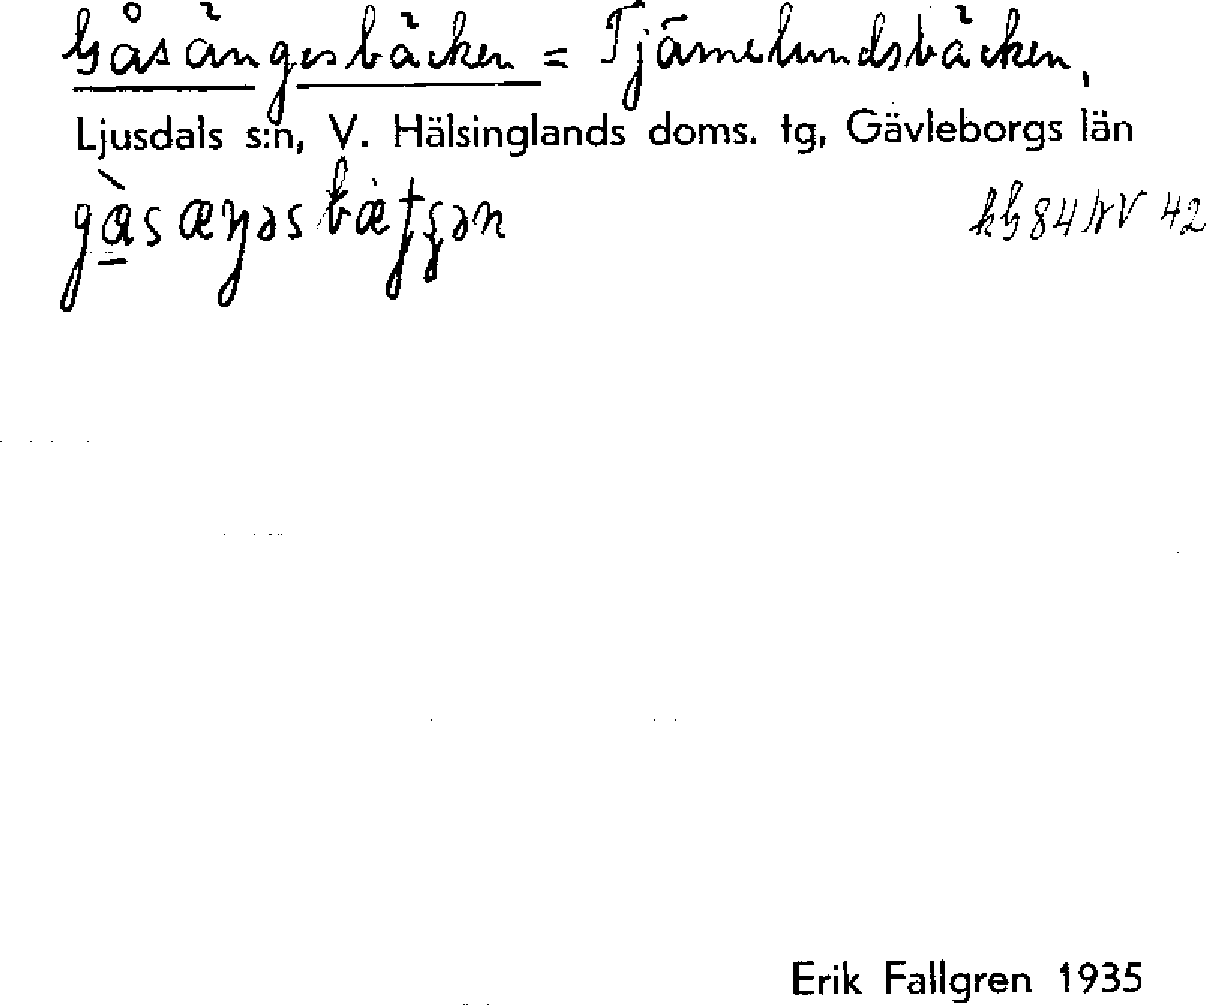 Gåsängesbäcken = Tjärnelundsbäcken,
Ljusdals s:n, V. Hälsinglands doms. tg, Gävleborgs län
gåsæŋəsbætʂən kb 84 NV 42
Erik Fallgren 1935